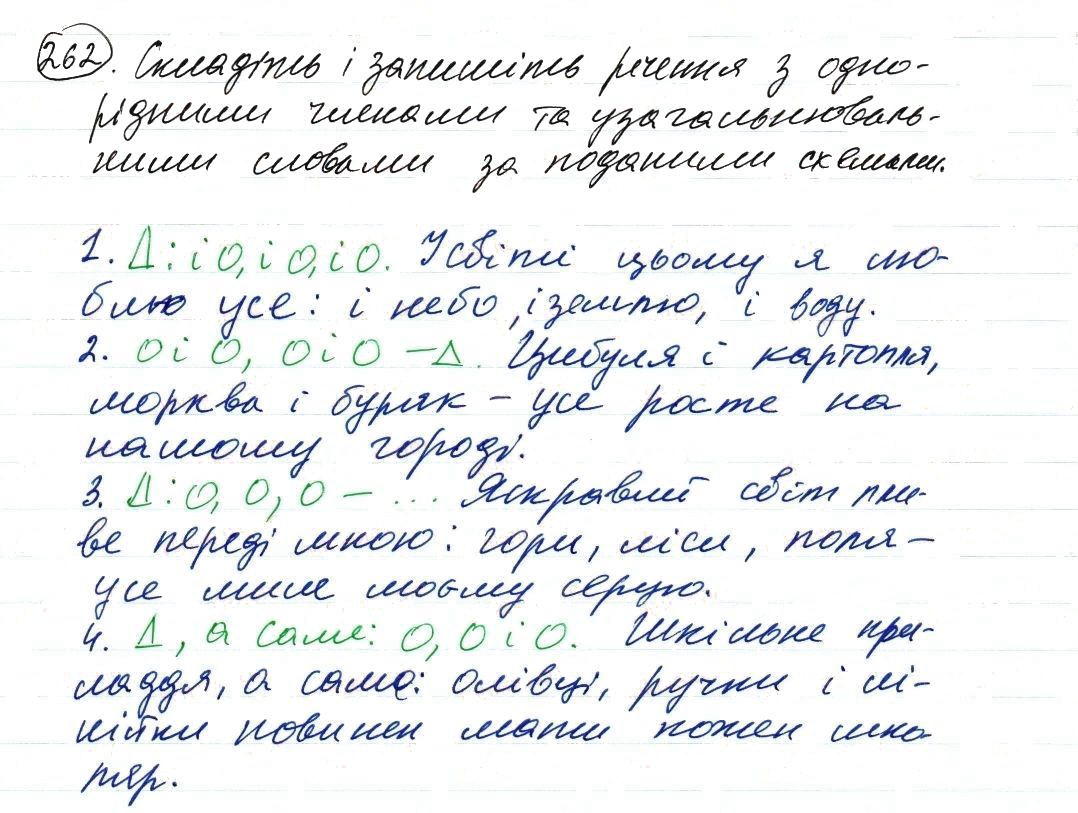 262. Складіть і запишіть речення з одно-
рідними членами та узагальнюваль-
ними словами за поданими схемами.
1. Δ: і О, і О, і О. У світі цьому я лю-
блю усе: і небо, і землю, і воду.
2. О і О, О і О – Δ. Цибуля і картопля,
морква і буряк – усе росте на
нашому городі.
3. Δ: О, О, О – ... Яскравий світ пли-
ве переді мною: гори, ліси, поля –
усе миле моєму серцю.
4. Δ, а саме: О, О і О. Шкільне при-
ладдя, а саме: олівці, ручки і лі-
нійки повинен мати кожен шко
ляр.